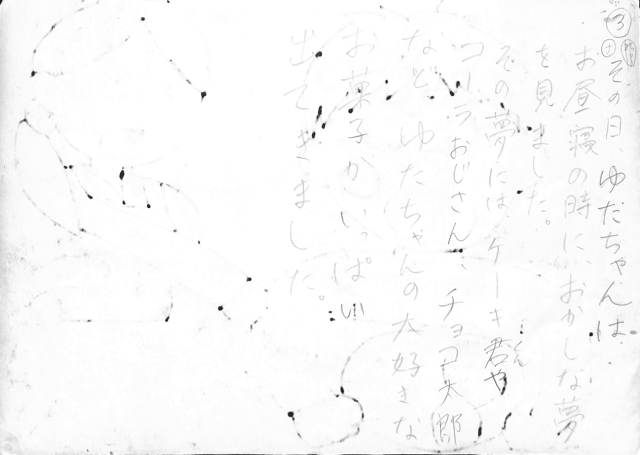 ③
その日、ゆだちゃんは
お昼寝の時に、おかしな夢
を見ました。
その夢には、ケーキ君や
くん
コーラおじさん、チョコ太郎
など、ゆだちゃんの大好きな
お菓子がいっぱい
出てきました。